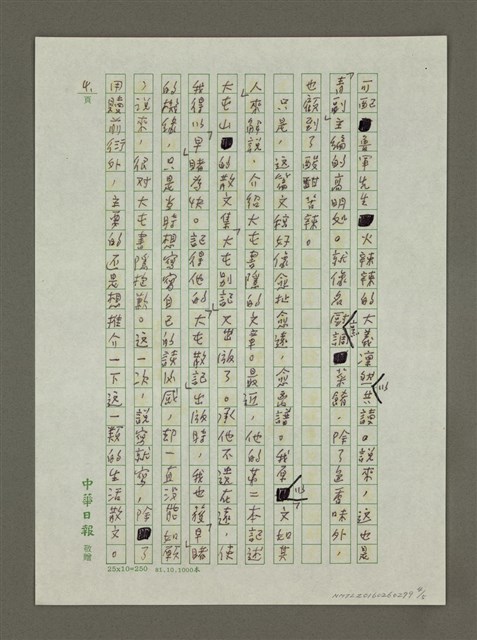 可配魯軍先生火辣辣的大義凜的共讀。說來，這也是
「青副」主編的高明如。就像名廚調菜餚，除了色香味外，
也顧到了酸甜苦辣。
只是，這篇文稿好像愈扯愈遠，愈離譜。我原文如其
人來解說，介紹大屯書隱的文章。最近，他的第二本記述
大屯山的散文集「大屯別記」又出版了。承他不遺在遠，使
我得以早睹為快。記得他的「大屯散記」出版時，我也獲早睹
的機緣，只是當時想寫寫自己的讀後感，卻一直沒能如願
，說來，很对大屯書隱抱歉。這一次，說寫就寫，除了
用贖前衍外，主要的還是想推介一下這一類的生活散文。
4頁
中華日報 敬贈
25x10=250 81.10.1000本
NMTL20160260299 4/5